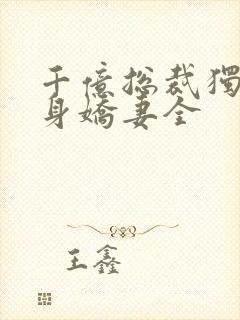 千億總裁獨
身嬌妻全
王鑫